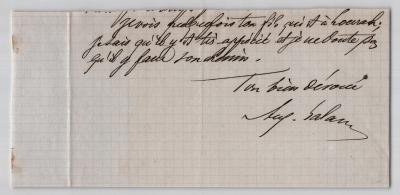 Je vois quelquefois ton fils qui est à
je sais qu'il y est très apprécié et je ne doute pas
qu'il y fasse son chemin.
Ton bien dévoué
Aug. Salam